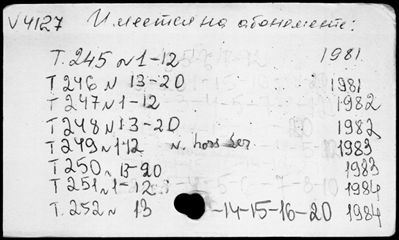 V4127 Имеется на абонементе:
Т. 245 N 1-12 1981
Т 246 N 13-20 1981
Т 247 N 1-12 1982
Т 248 N 13-20 1982
Т 249 N 1-12 N. hors ser 1983
Т 250 N 13-20 1983
Т 251 N 1-12 1984
Т. 252 N 13 -14-15-16-20 1984